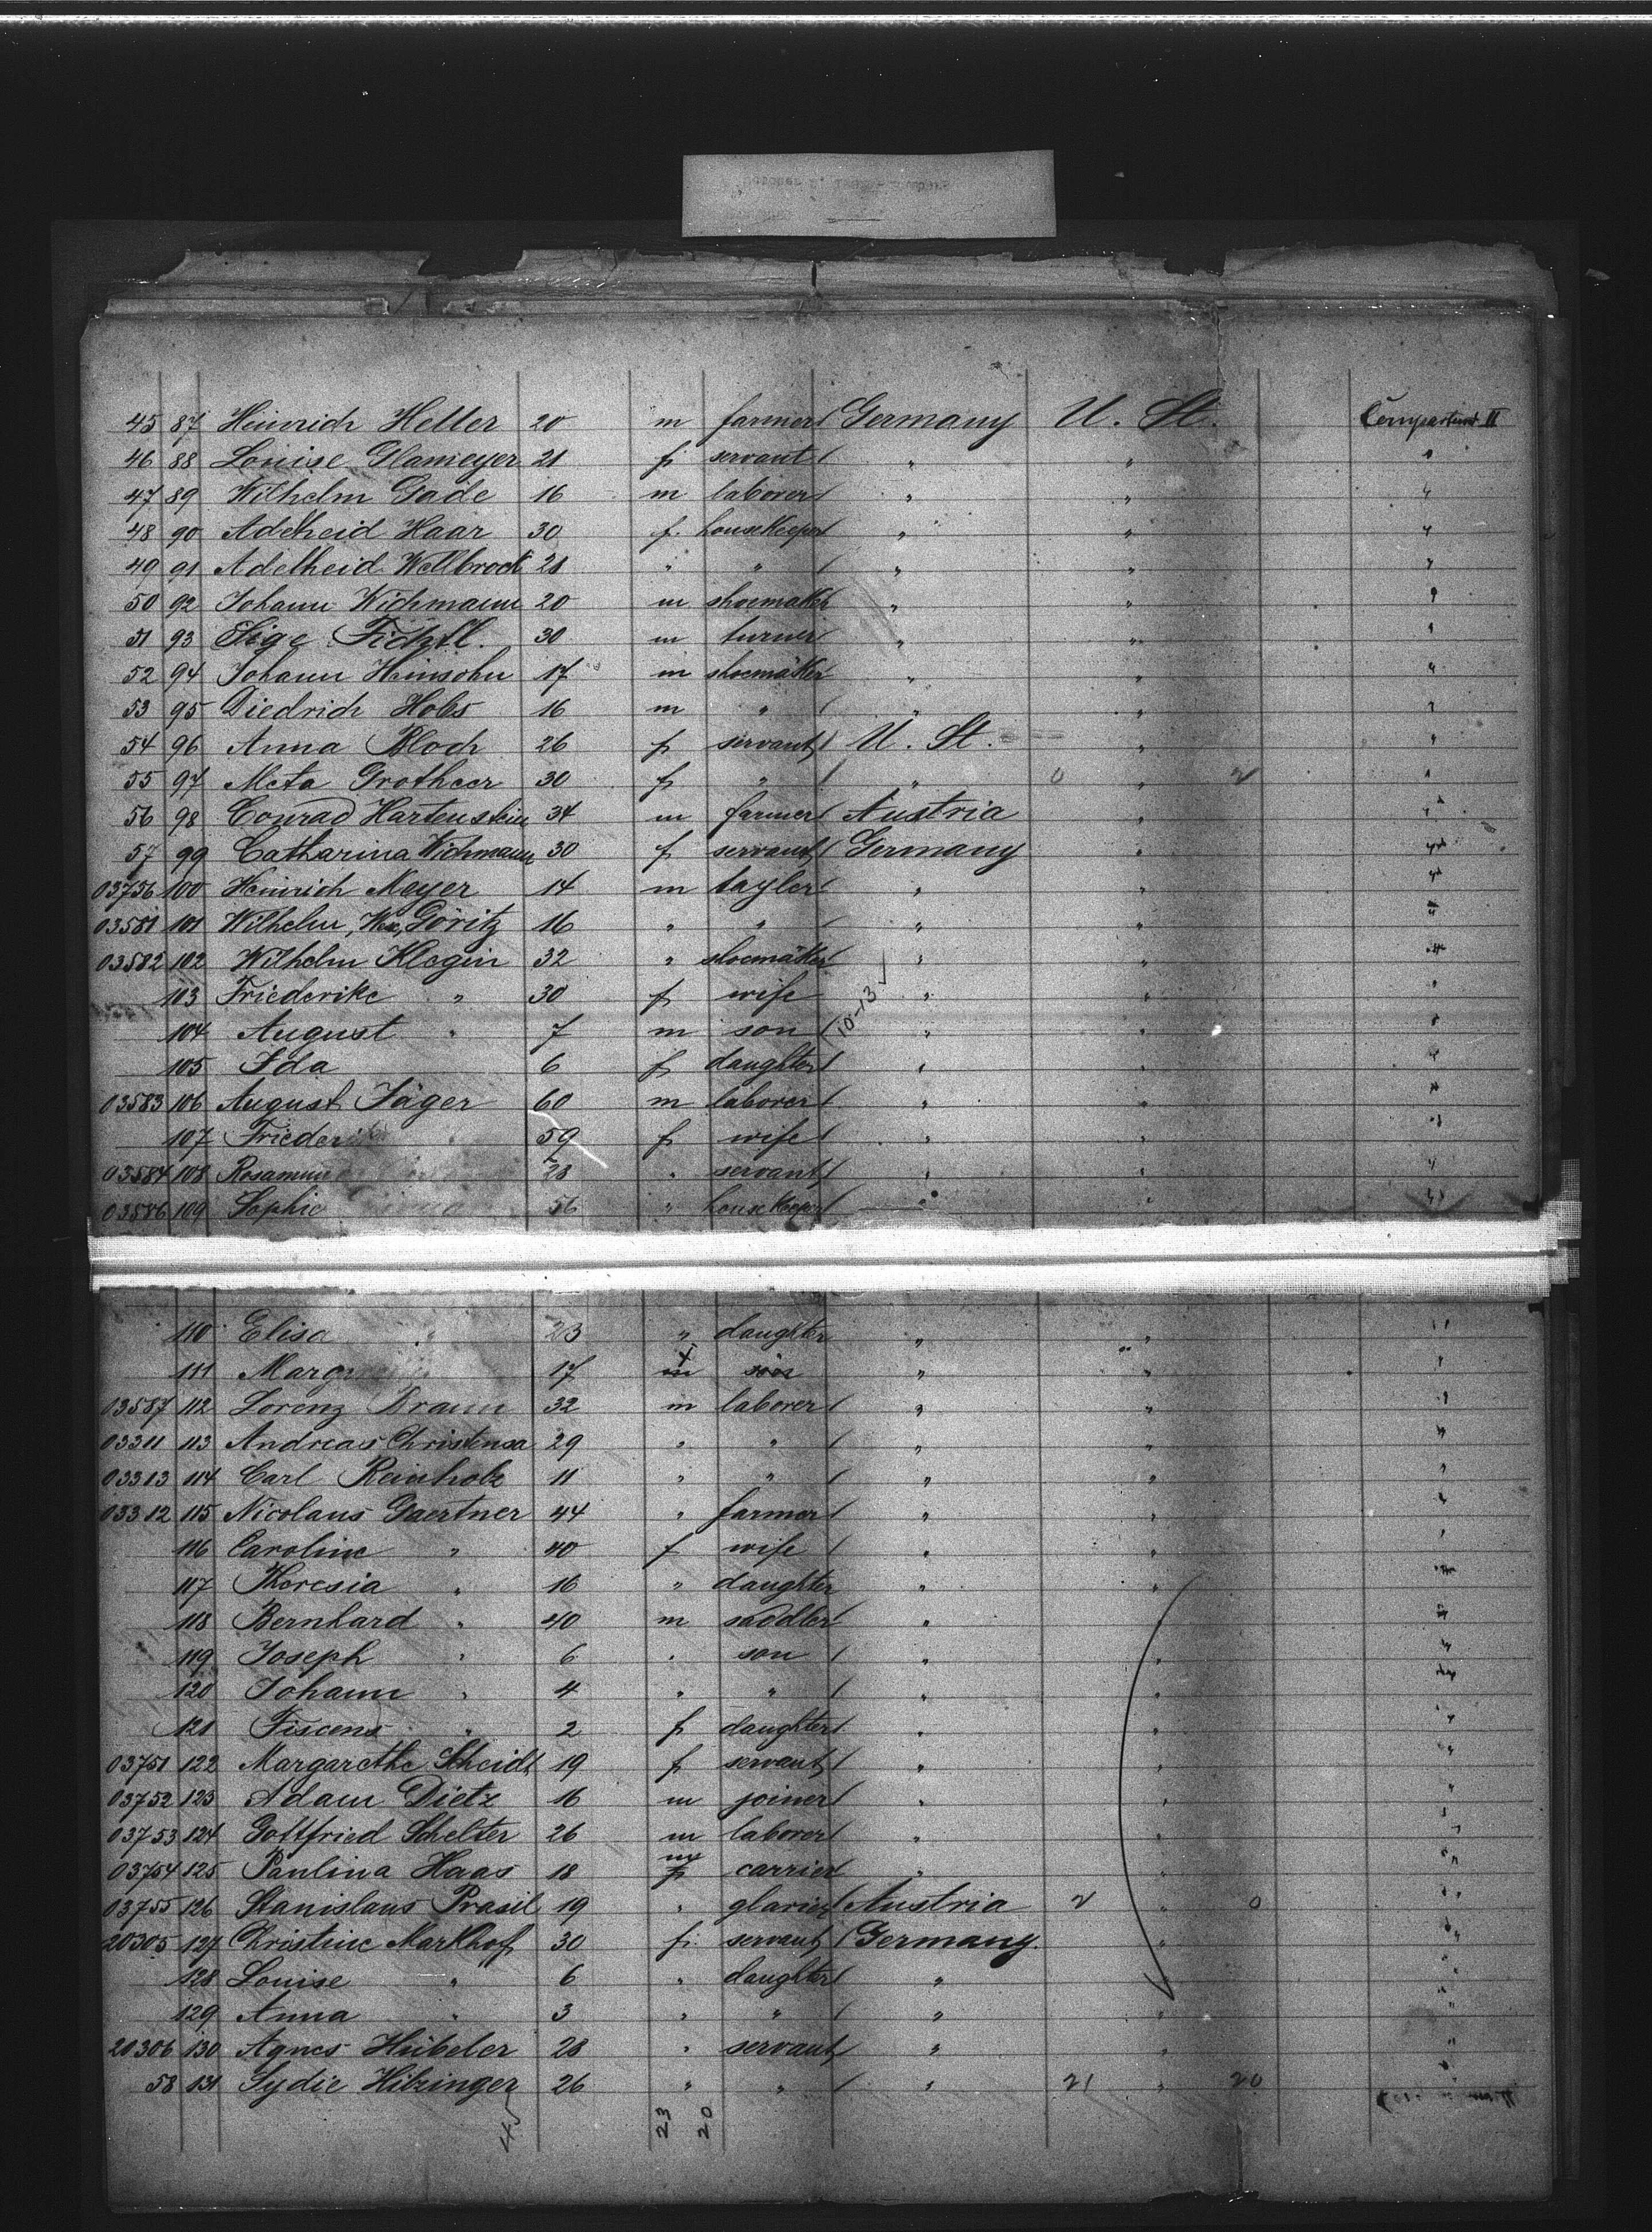 45 87 Heinrich Heller 20 m farmer Germany U. St. Compartemt II
46 88 Louise Glameyer 21 f servant " " "
47 89 Wilhelm Gade 16 m laborer " " "
48 90 Adelheid Haar 30 f. housekeeper " " "
49 91 Adelheid Wellbrock 21 " " " " "
50 92 Johann Wichmann 20 m shoemaker " " "
51 93 Fichtl. 30 m turner " " "
52 94 Johann Heinsohn 17 m shoemäker " " "
53 95 Diedrich Hobs 16 m " " " "
54 96 Anna Bloch 26 f servant U. St. " "
55 97 Meta Grotheer 30 f " " 0 " 2 "
56 98 Conrad Hartenstein 34 m farmer Austria " "
57 99 Catharina Wichmann 30 f servant Germany " "
03756 100 Heinrich Meyer 14 m tayler " " "
03581 101 Wilhelm, Göritz 16 " " " " "
03582 102 Wilhelm Klegin 32 " shoemäker " " "
103 Friederike " 30 f wife " " "
104 August " 7 m son 10-13 " " "
105 Ida 6 f daughter " " "
03583 106 August Jäger 60 m laborer " " "
107 59 f wife " " "
03584 108 28 " servant " " "
03586 109 Sophie 56 " housekeeper " " "
110 Elisa " 23 " daughter " " "
111 17 m f son " " "
03587 112 Lorenz Braun 32 m laborer " " "
03311 113 Andreas Christensa 29 " " " " "
03313 114 Carl Reinholz 11 " " " " "
03312 115 Nicolaus Gaertner 44 " farmer " " "
116 Caroline " 40 f wife " " "
117 Theresia " 16 " daughter " " "
118 Bernhard " 40 m saddler " "
119 Joseph " 6 " son " " "
120 Johann " 4 " " " " "
121 " 2 f daughter " " "
03751 122 Margarethe Scheidt 19 f servant " " "
03752 123 Adam Dietz 16 m joiner " " "
03753 124 Gottfried Schelter 26 m laborer " " "
03754 125 Paulina Haas 18 m f carrier " " "
03755 126 Stanislaus Prasil 19 " glarier Austria 2 " 0 "
20305 127 Christine Markhof 30 f. servant Germany. " "
128 Louise " 6 " daughter " " "
129 Anna " 3 " " " " "
20306 130 Agnes Hübeler 28 " servant " " "
58 131 Lydie Hilzinger 26 " " " 21 " 20 "
45 23 20